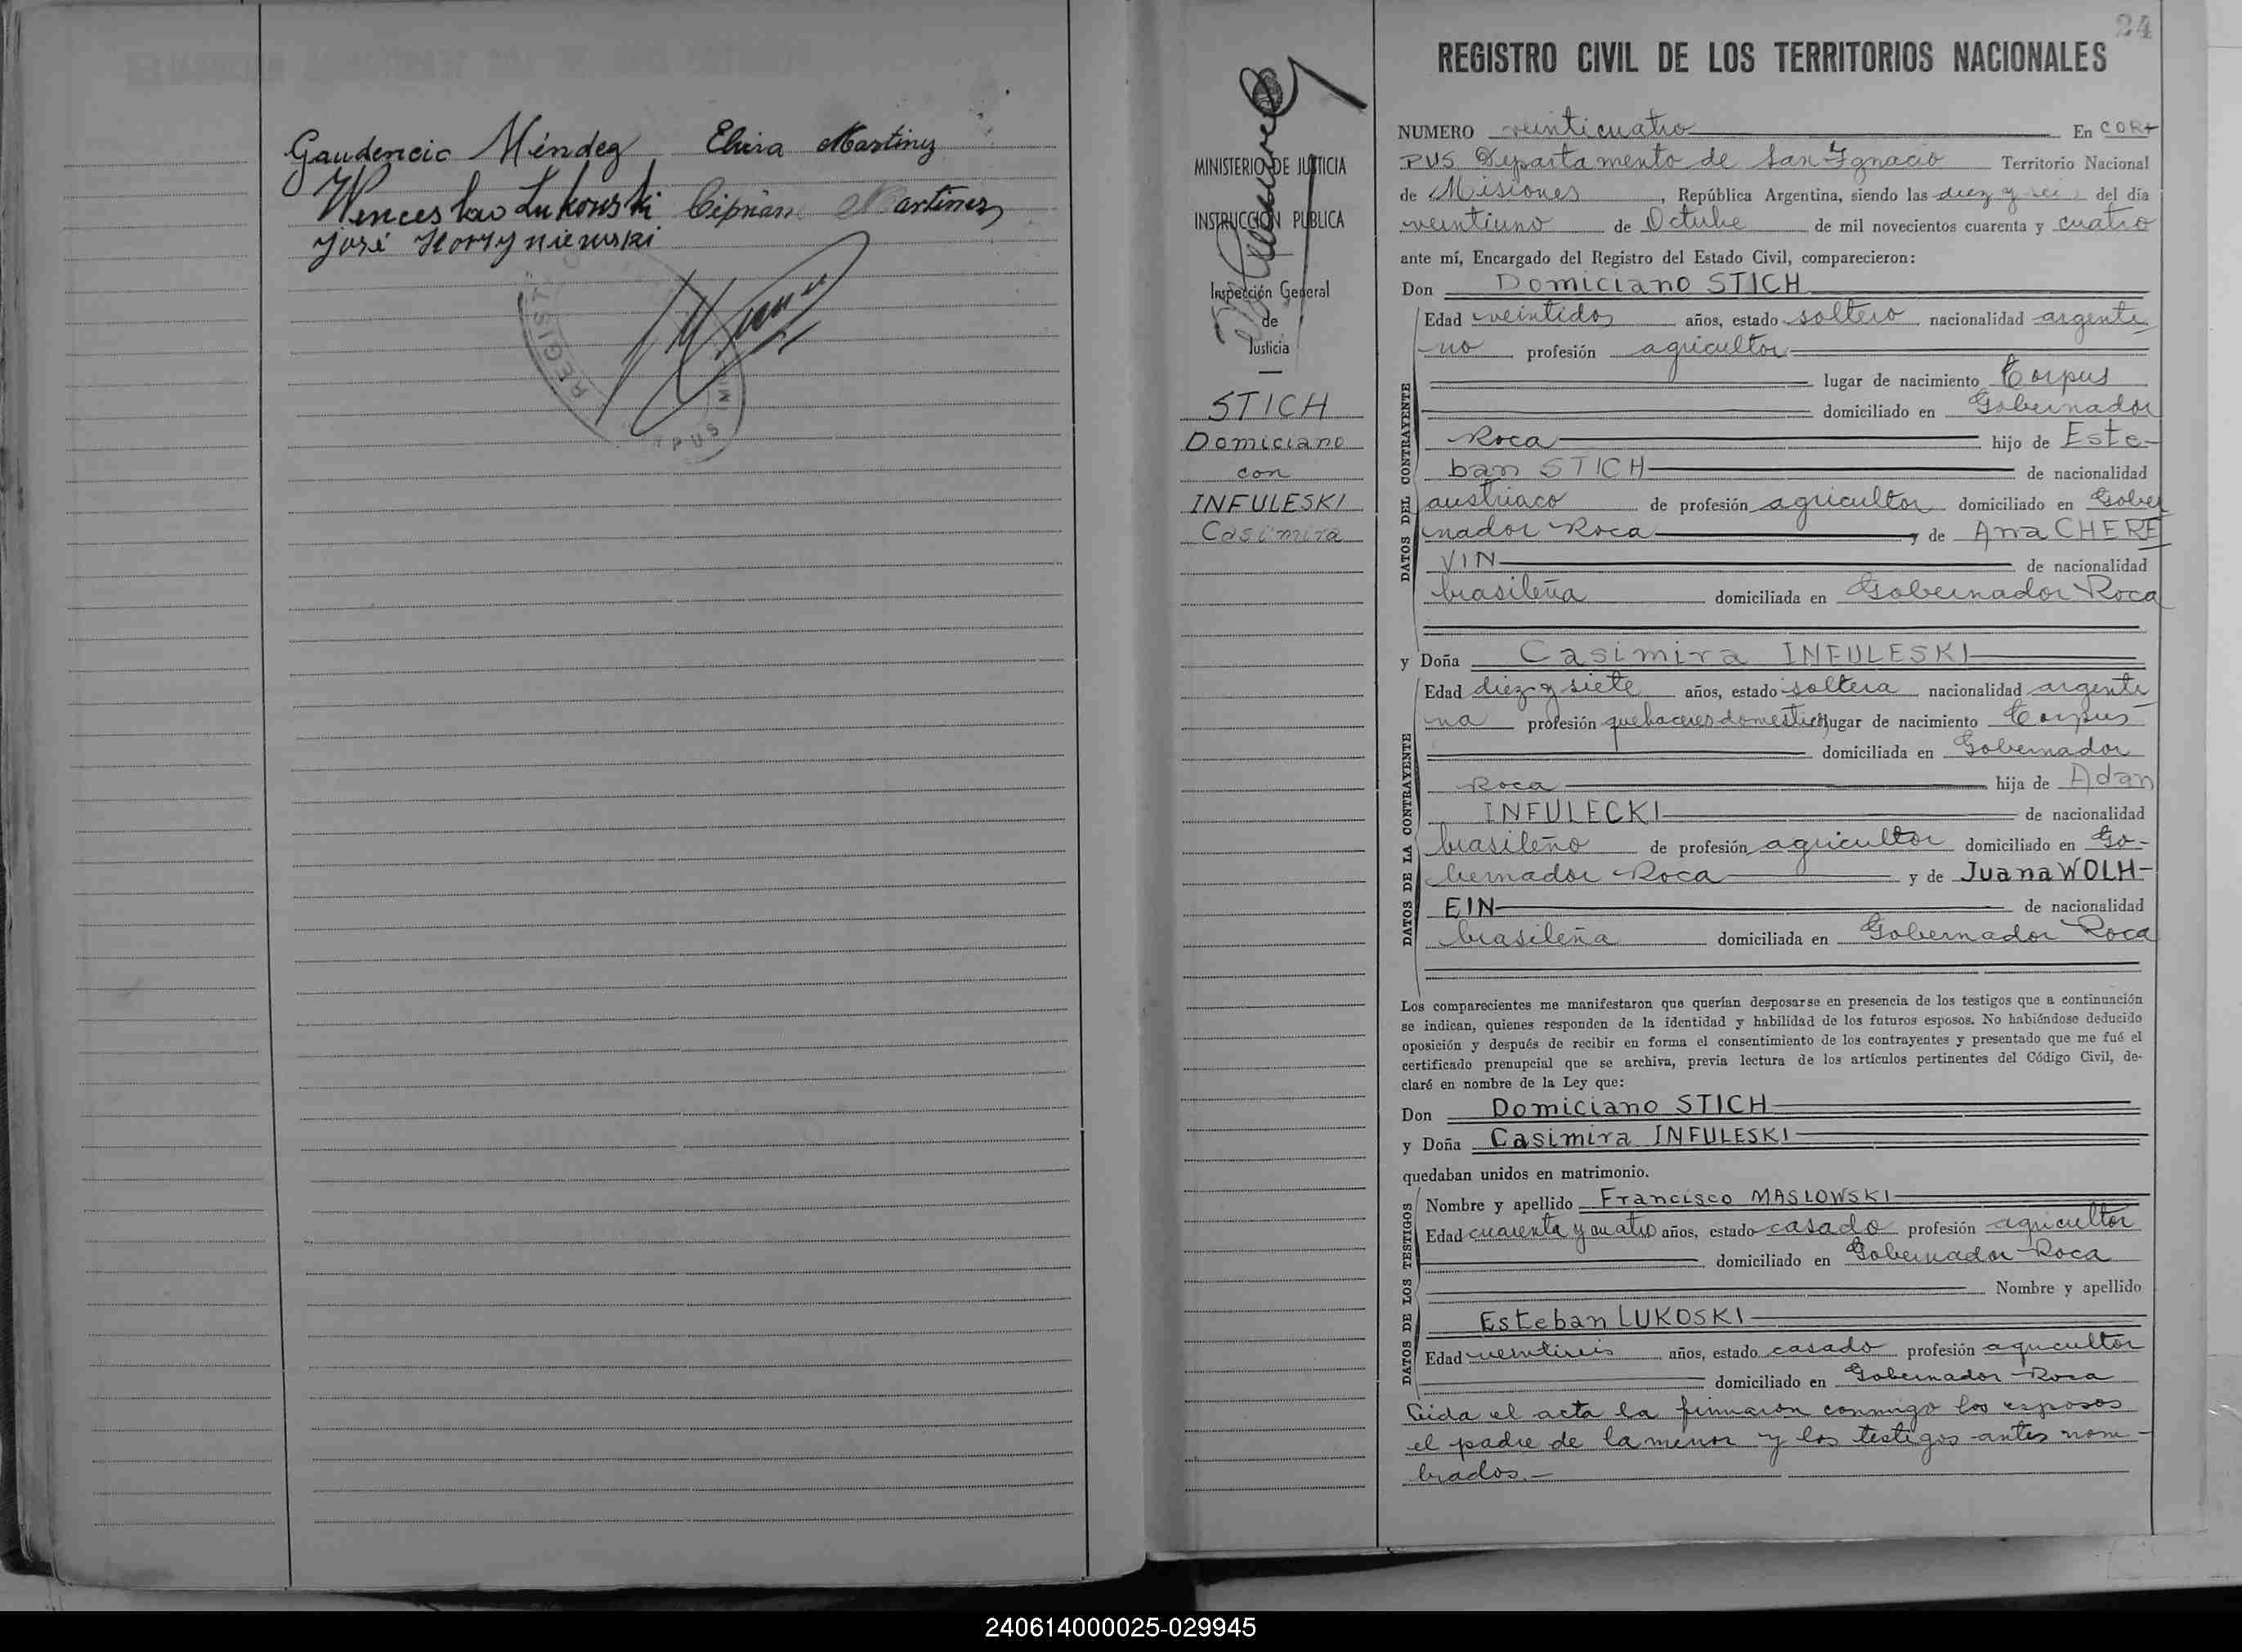 Gaudencio Méndez Elvira Martinez
Wenceslao Lukowski Ciprian Martinez
José Horzyniewski
REGIST
PUS MI
24
REGISTRO CIVIL DE LOS TERRITORIOS NACIONALES
MINISTERIO DE JUSTICIA
INSTRUCCION PUBLICA
Inspección General
de
Justicia
STICH
Domiciano
con
INFULESKI
Casimira
NUMERO veinticuatro En COR+
PUS Departamento de San Ignacio Territorio Nacional
de Misiones, República Argentina, siendo las diez y seis del día
veintiuno de Octubre de mil novecientos cuarenta y cuatro
ante mí, Encargado del Registro del Estado Civil, comparecieron:
Don Domiciano STICH
DATOS DEL CONTRAYENTE
Edad veintidos años, estado soltero nacionalidad argenti
no profesión agricultor
lugar de nacimiento Corpus
domiciliado en Gobernador
Roca hijo de Este-
ban STICH de nacionalidad
austriaco de profesión agricultor domiciliado en Gober
nador Roca y de Ana CHERE
VIN de nacionalidad
brasileña domiciliada en Gobernador Roca
y Doña Casimira INFULESKI
DATOS DE LA CONTRAYENTE
Edad diez y siete años, estado soltera nacionalidad argenti
na profesión quehaceres domesticos lugar de nacimiento Corpus
domiciliada en Gobernador
Roca hija de Adan
INFULECKI de nacionalidad
brasileño de profesión agricultor domiciliado en Go-
bernador Roca y de Juana WOLH-
EIN de nacionalidad
brasileña domiciliada en Gobernador Roca
Los comparecientes me manifestaron que querían desposarse en presencia de los testigos que a continuación
se indican, quienes responden de la identidad y habilidad de los futuros esposos. No habiéndose deducido
oposición y después de recibir en forma el consentimiento de los contrayentes y presentado que me fué el
certificado prenupcial que se archiva, previa lectura de los artículos pertinentes del Código Civil, de-
claré en nombre de la Ley que:
Don Domiciano STICH
y Doña Casimira INFULESKI
quedaban unidos en matrimonio.
DATOS DE LOS TESTIGOS
Nombre y apellido Francisco MASLOWSKI
Edad cuarenta y cuatro años, estado casado profesión agricultor
domiciliado en Gobernador Roca
Nombre y apellido
Esteban LUKOSKI
Edad veintiseis años, estado casado profesión agricultor
domiciliado en Gobernador Roca
Leida el acta la firmaron conmigo los esposos
el padre de la menor y los testigos antes nom-
brados.-
240614000025-029945